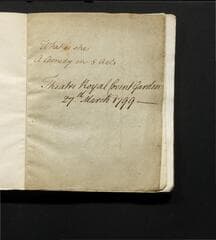 What is she
A Comedy in 5 Acts
Theatre Royal Covent Garden
27th March 1799 —